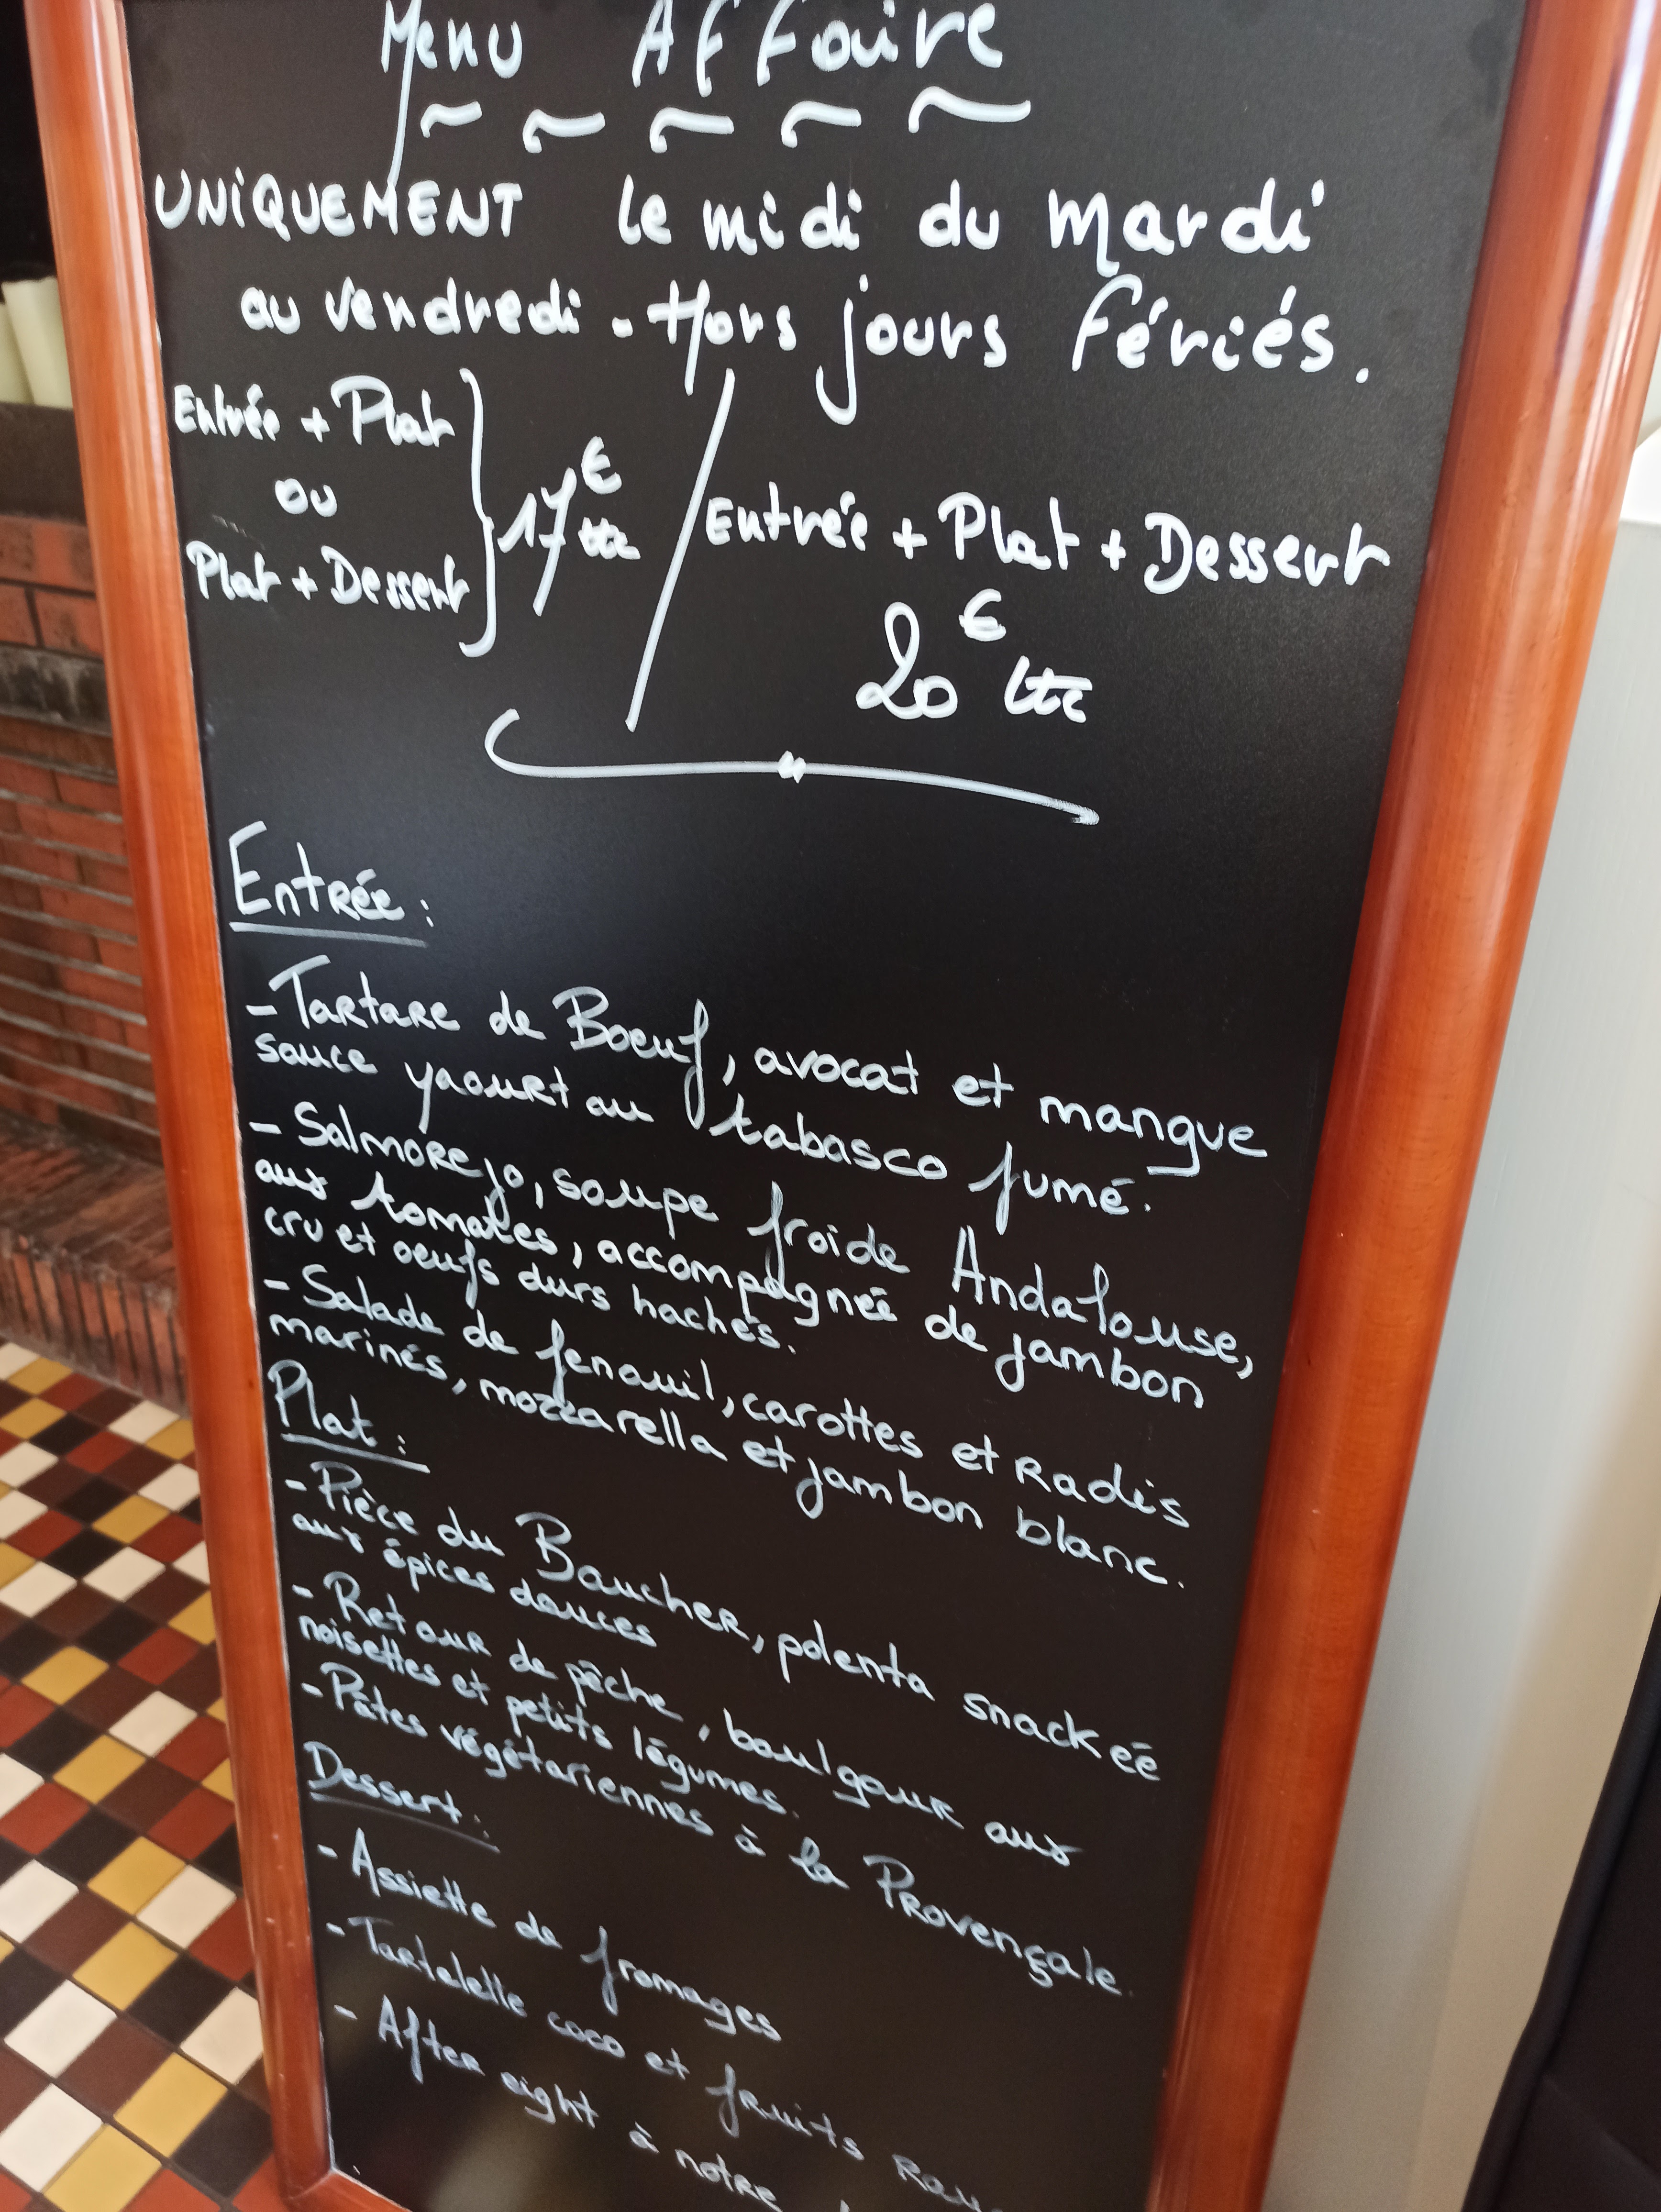 Menu Affaire
UNIQUEMENT le midi du mardi
au vendredi. Hors jours fériés.
Entrée + Plat
ou
Plat + Dessert
17€ ttc
Entrée + Plat + Dessert
20€ ttc
Entrée :
- Tartare de Boeuf, avocat et mangue
sauce yaourt au tabasco fumé.
- Salmorejo, soupe froide Andalouse,
aux tomates, accompagnée de jambon
cru et oeufs durs hachés.
- Salade de fenouil, carottes et Radis
marinés, mozzarella et jambon blanc.
Plat :
- Pièce du Boucher, polenta snackée
aux épices douces
- Retour de pêche, boulgour aux
noisettes et petits légumes.
- Pâtes végétariennes à la Provençale.
Dessert :
- Assiette de fromages
- Tartelette coco et fruits
- After eight à notre